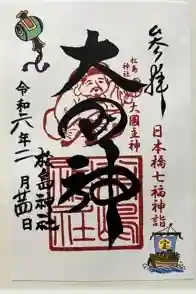 参拝
日本橋七福神詣
松島神社
大國主神
大国神
令和六年二月廿四日
松島神社